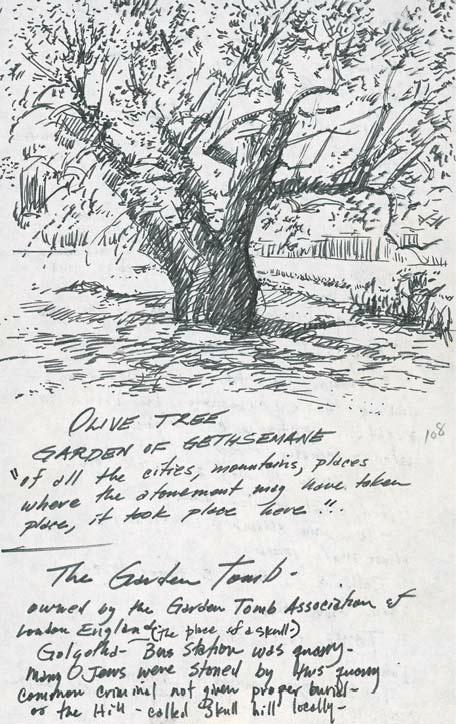 OLIVE TREE
GARDEN OF GETHSEMANE
108
"of all the cities, mountains, places
where the atonement may have taken
place, it took place here".
The Garden Tomb-
owned by the Garden Tomb Association of
London England (The place of a skull-)
Golgotha- Bus Station was quarry-
many Jews were stoned by this quarry
common criminal not given proper burial-
or the Hill - called Skull hill locally-